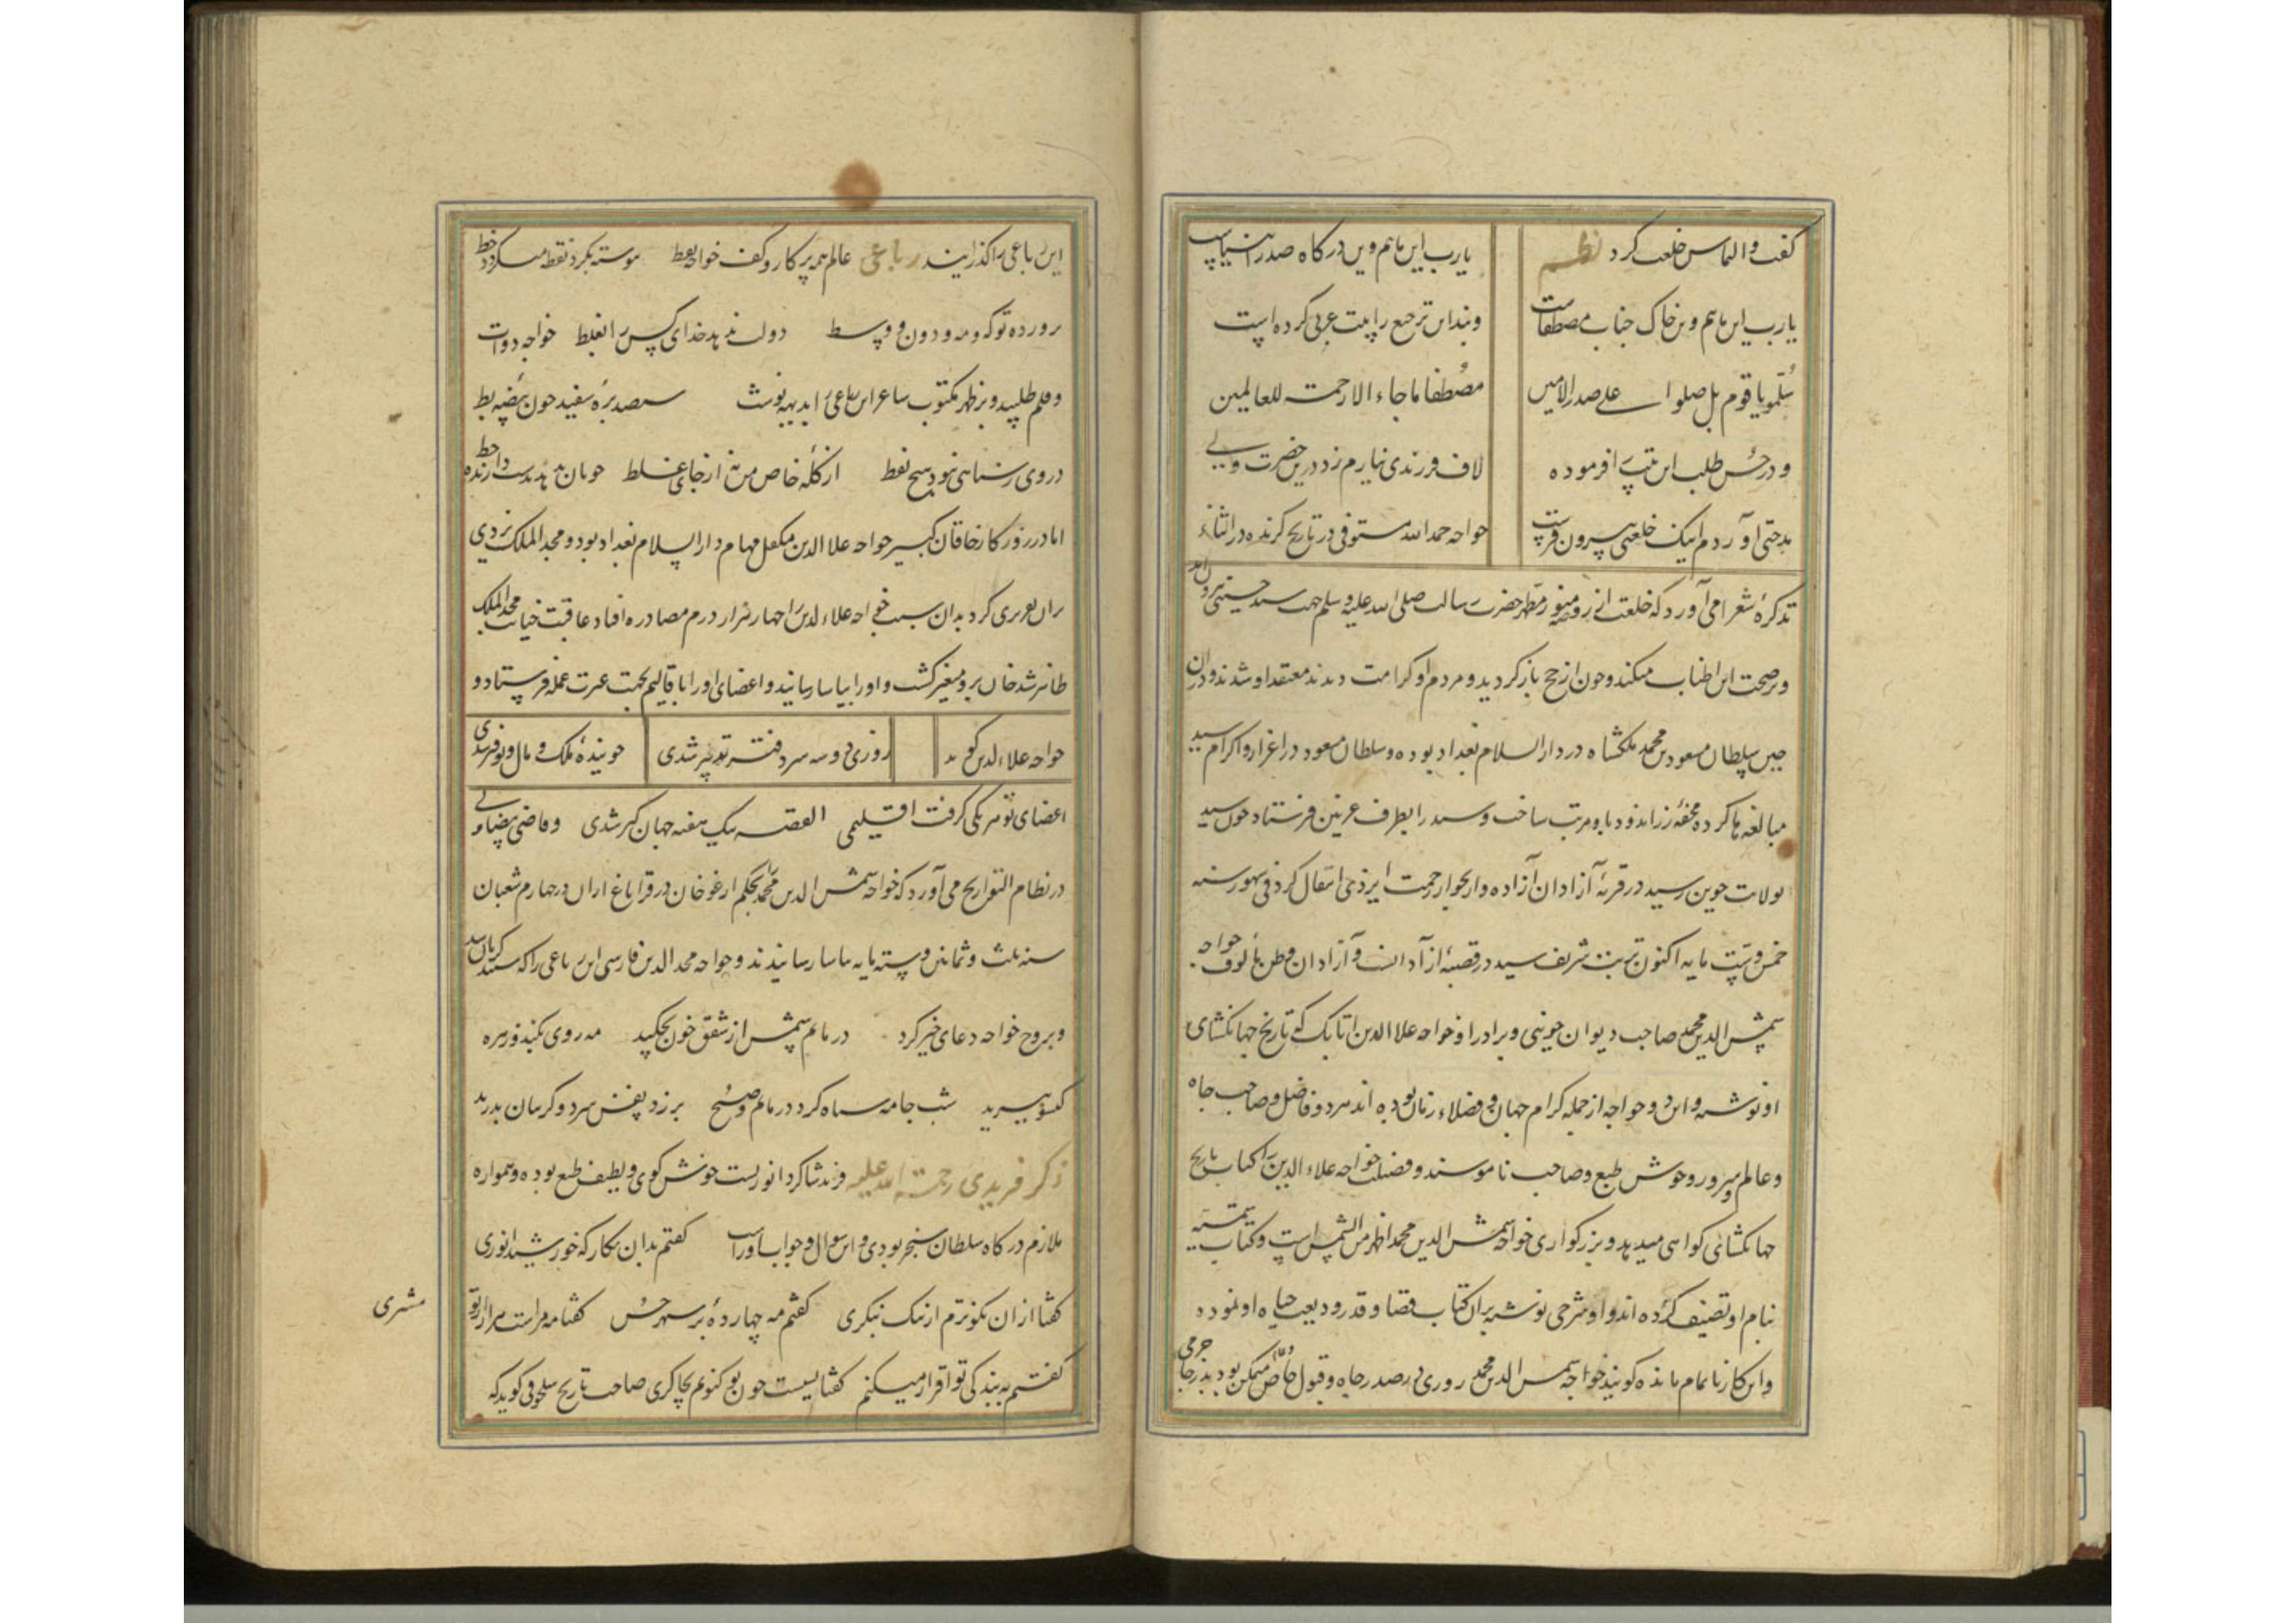 گفت و التماس خلعت کرد نظم یارب این مائیم و این درگاه صدر انبیاست
یارب این مائیم و بر خاک جناب مصطفاست و بند این ترجیع را بیت عربی کرده است
سلموا یا قوم بل صلوا علی صدر الامین مصطفا ما جاء الا رحمت للعالمین
و در حسن طلب این بیت افرموده لاف فرزندی نیارم زد درین حضرت ولی
مدحتی آوردم اینک خلعتی بیرون فرست خواجه حمد الله مستوفی در تاریخ گزیده در اثناء
تذکره شعرا می آورد که خلعت از روضه منور مطهر حضرت رسالت صلی الله علیه و سلم جهت سید حسینی بیرون آمد
و بر صحت این اطناب میکند و چون از حج باز گردید و مردم او کرامت دیدند معتقد او شدند و در آن
حین سلطان مسعود بن محمد ملکشاه در دار السلام بغداد بوده و سلطان مسعود در اعزاز و اکرام سید
مبالغه ها کرده محفه زراندود با و مرتب ساخت و سید را بطرف غزنین فرستاد چون سید
بولایت جوین رسید در قریه آزادان آزاده وار بجوار رحمت ایزدی انتقال کرد فی شهور سنه
خمس و ستین مایه اکنون تربت شریف سید در قصبه آزادانست و آزادان وطن مألوف خواجه
شمس الدین محمد صاحب دیوان جوینی و برادر او خواجه علا الدین اتابک که تاریخ جهانگشای
او نوشته و این دو خواجه از جمله کرام جهان و فضلاء زمان بوده اند مرد و فاضل و صاحب جاه
و عالم و سرور و خوش طبع و صاحب ناموسند و فضیلت خواجه علاء الدین را کتاب تاریخ
جهانگشائی گواهی میدهد و بزرگواری خواجه شمس الدین محمد اظهر من الشمس است و کتاب شمسیه
بنام او تصنیف کرده اند و او شرحی نوشته بران کتاب قضا و قدر ودیعت حیاه او نموده
و این کار ناتمام مانده گویند خواجه شمس الدین محمد روزی در صدر جاه و قبول خاص متمکن بود بدر جاجرمی
این رباعی را گذرانید رباعی عالم همه پرگار و کف خواجه نقط پیوسته بگرد نقطه میگردد خط
پرورده تو که و مه و دون و وسط دولت ندهد خدای کس را بغلط خواجه دوات
و قلم طلبید و بر ظهر مکتوب شاعر این رباعی را بدیهه نوشت سیصد بره سفید چون بیضه بط
در وی سیاهی نبود هیچ نقط از گله خاص من نه از جای غلط چوپان بدهد بدست دارنده خط
اما در روزگار خاقان کبیر خواجه علا الدین متکفل مهام دار السلام بغداد بود و مجد الملک یزدی
بران تقریری کرد بدان سبب خواجه علاء الدین را چهار هزار درم مصادره افتاد عاقبت خیانت مجد الملک
ظاهر شد خان برو متغیر گشت و او را بیاسا رسانیدند و اعضای او را با قالیم بجهت عبرت عمله فرستاد و
خواجه علاء الدین گوید روزی دو سه سر دفتر تدبیر شدی جوینده ملک و مال و توفیر شدی
اعضای تو هر یکی گرفت اقلیمی القصه بیک هفته جهان گیر شدی و قاضی بیضاوی
در نظام التواریخ می آورد که خواجه شمس الدین محمد را بحکم ارغو خان در قرا باغ اران در چهارم شعبان
سنه ثلث و ثمانین و سته مایه بیاسا رسانیدند و خواجه مجد الدین فارسی این رباعی را که شنید گریان شد
و بروح خواجه دعای خیر کرد در ماتم شمس از شفق خون بچکید مه روی بکند و زهره
گیسو ببرید شب جامه سیاه کرد در ماتم و صبح بر زد نفس سرد و گریبان بدرید
ذکر فریدی رحمت الله علیه فرند شاگرد انوریست خوش گوی و لطیف طبع بوده و همواره
ملازم درگاه سلطان سنجر بودی و این سوال و جواب او راست گفتم بدان نگار که خورشید انوری
گفتا ازان نکوترم ار نیک بنگری گفتم مه چهارده بر سپهر حسن گفتا مه مراست هزار از تو
مشتری
گفتم ببندگی تو اقرار میکنم گفتا بسیست چون تو کنونم بچاکری صاحب تاریخ سلجوقی گوید که